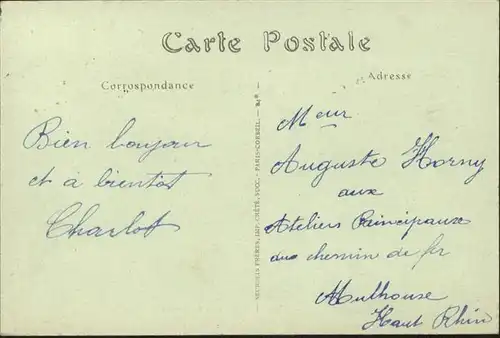 Carte Postale
Correspondance
Adresse
Bien bonjour
et à bientot
Charlot
NEURDEIN FRÈRES, IMP. CRÉTÉ, SUCC. - PARIS-CORBEIL.
Meur
Auguste Horny
aux
Ateliers Principaux
du chemin de fer
Mulhouse
Haut Rhin